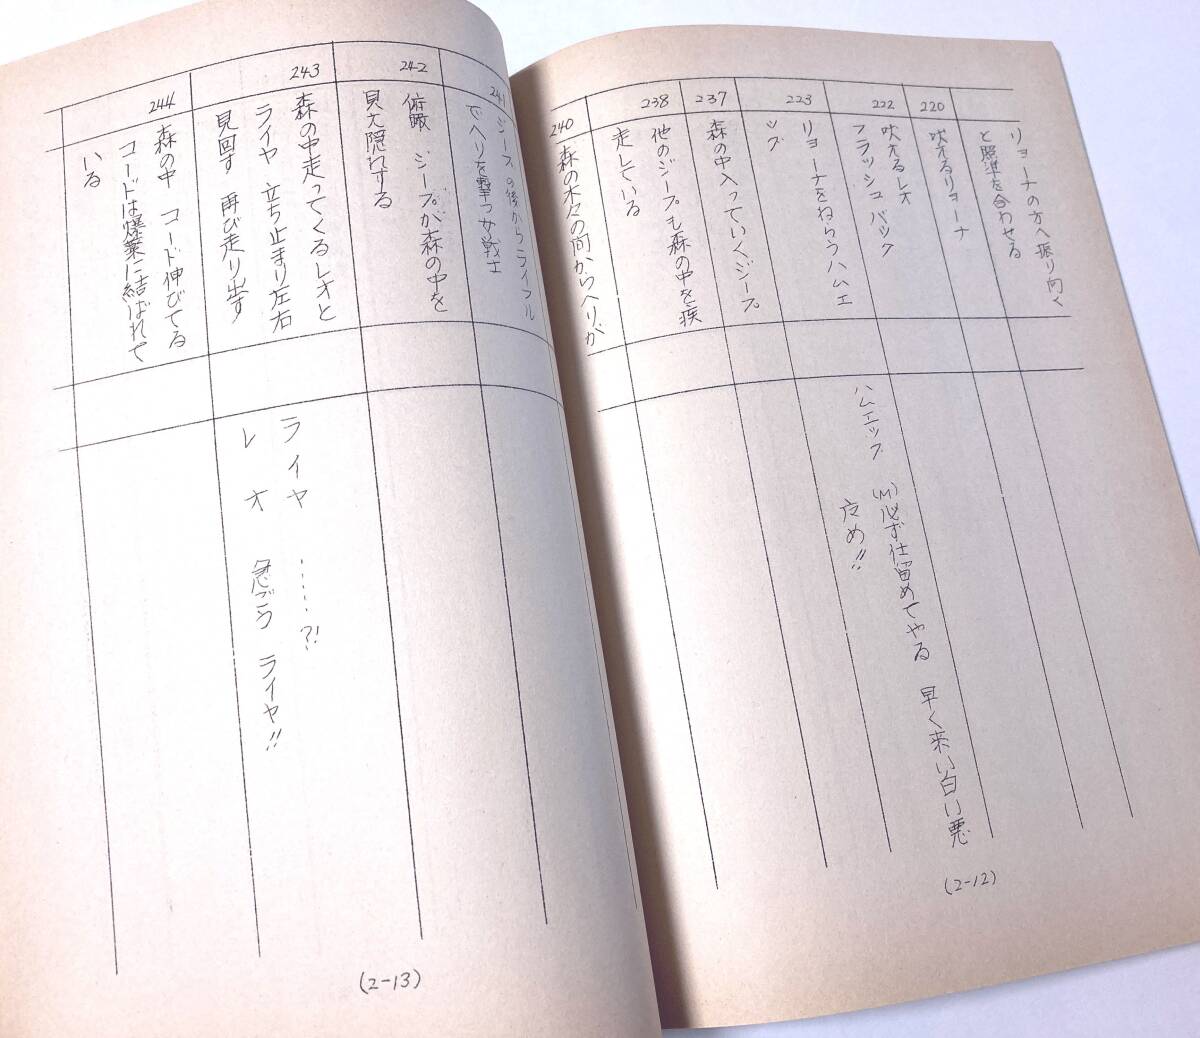 リョーナの方へ振り向く
と照準を合わせる
220
吠えるリョーナ
222
吠えるレオ
フラッシュバック
223
リョーナをねらうハムエ
ッグ
ハムエッグ (M)必ず仕留めてやる 早く来い白い悪
魔め!!
237
森の中入っていくジープ
238
他のジープも森の中を疾
走している
(2-12)
240
森の木々の間からヘリが
241
ジープの後からライフル
でヘリを撃つ女戦士
242
俯瞰 ジープが森の中を
見え隠れする
243
森の中走ってくるレオと
ライヤ 立ち止まり左右
見回す 再び走り出す
ライヤ ……?!
レオ 急ごう ライヤ!!
244
森の中 コード伸びてる
コードは爆薬に結ばれて
いる
(2-13)